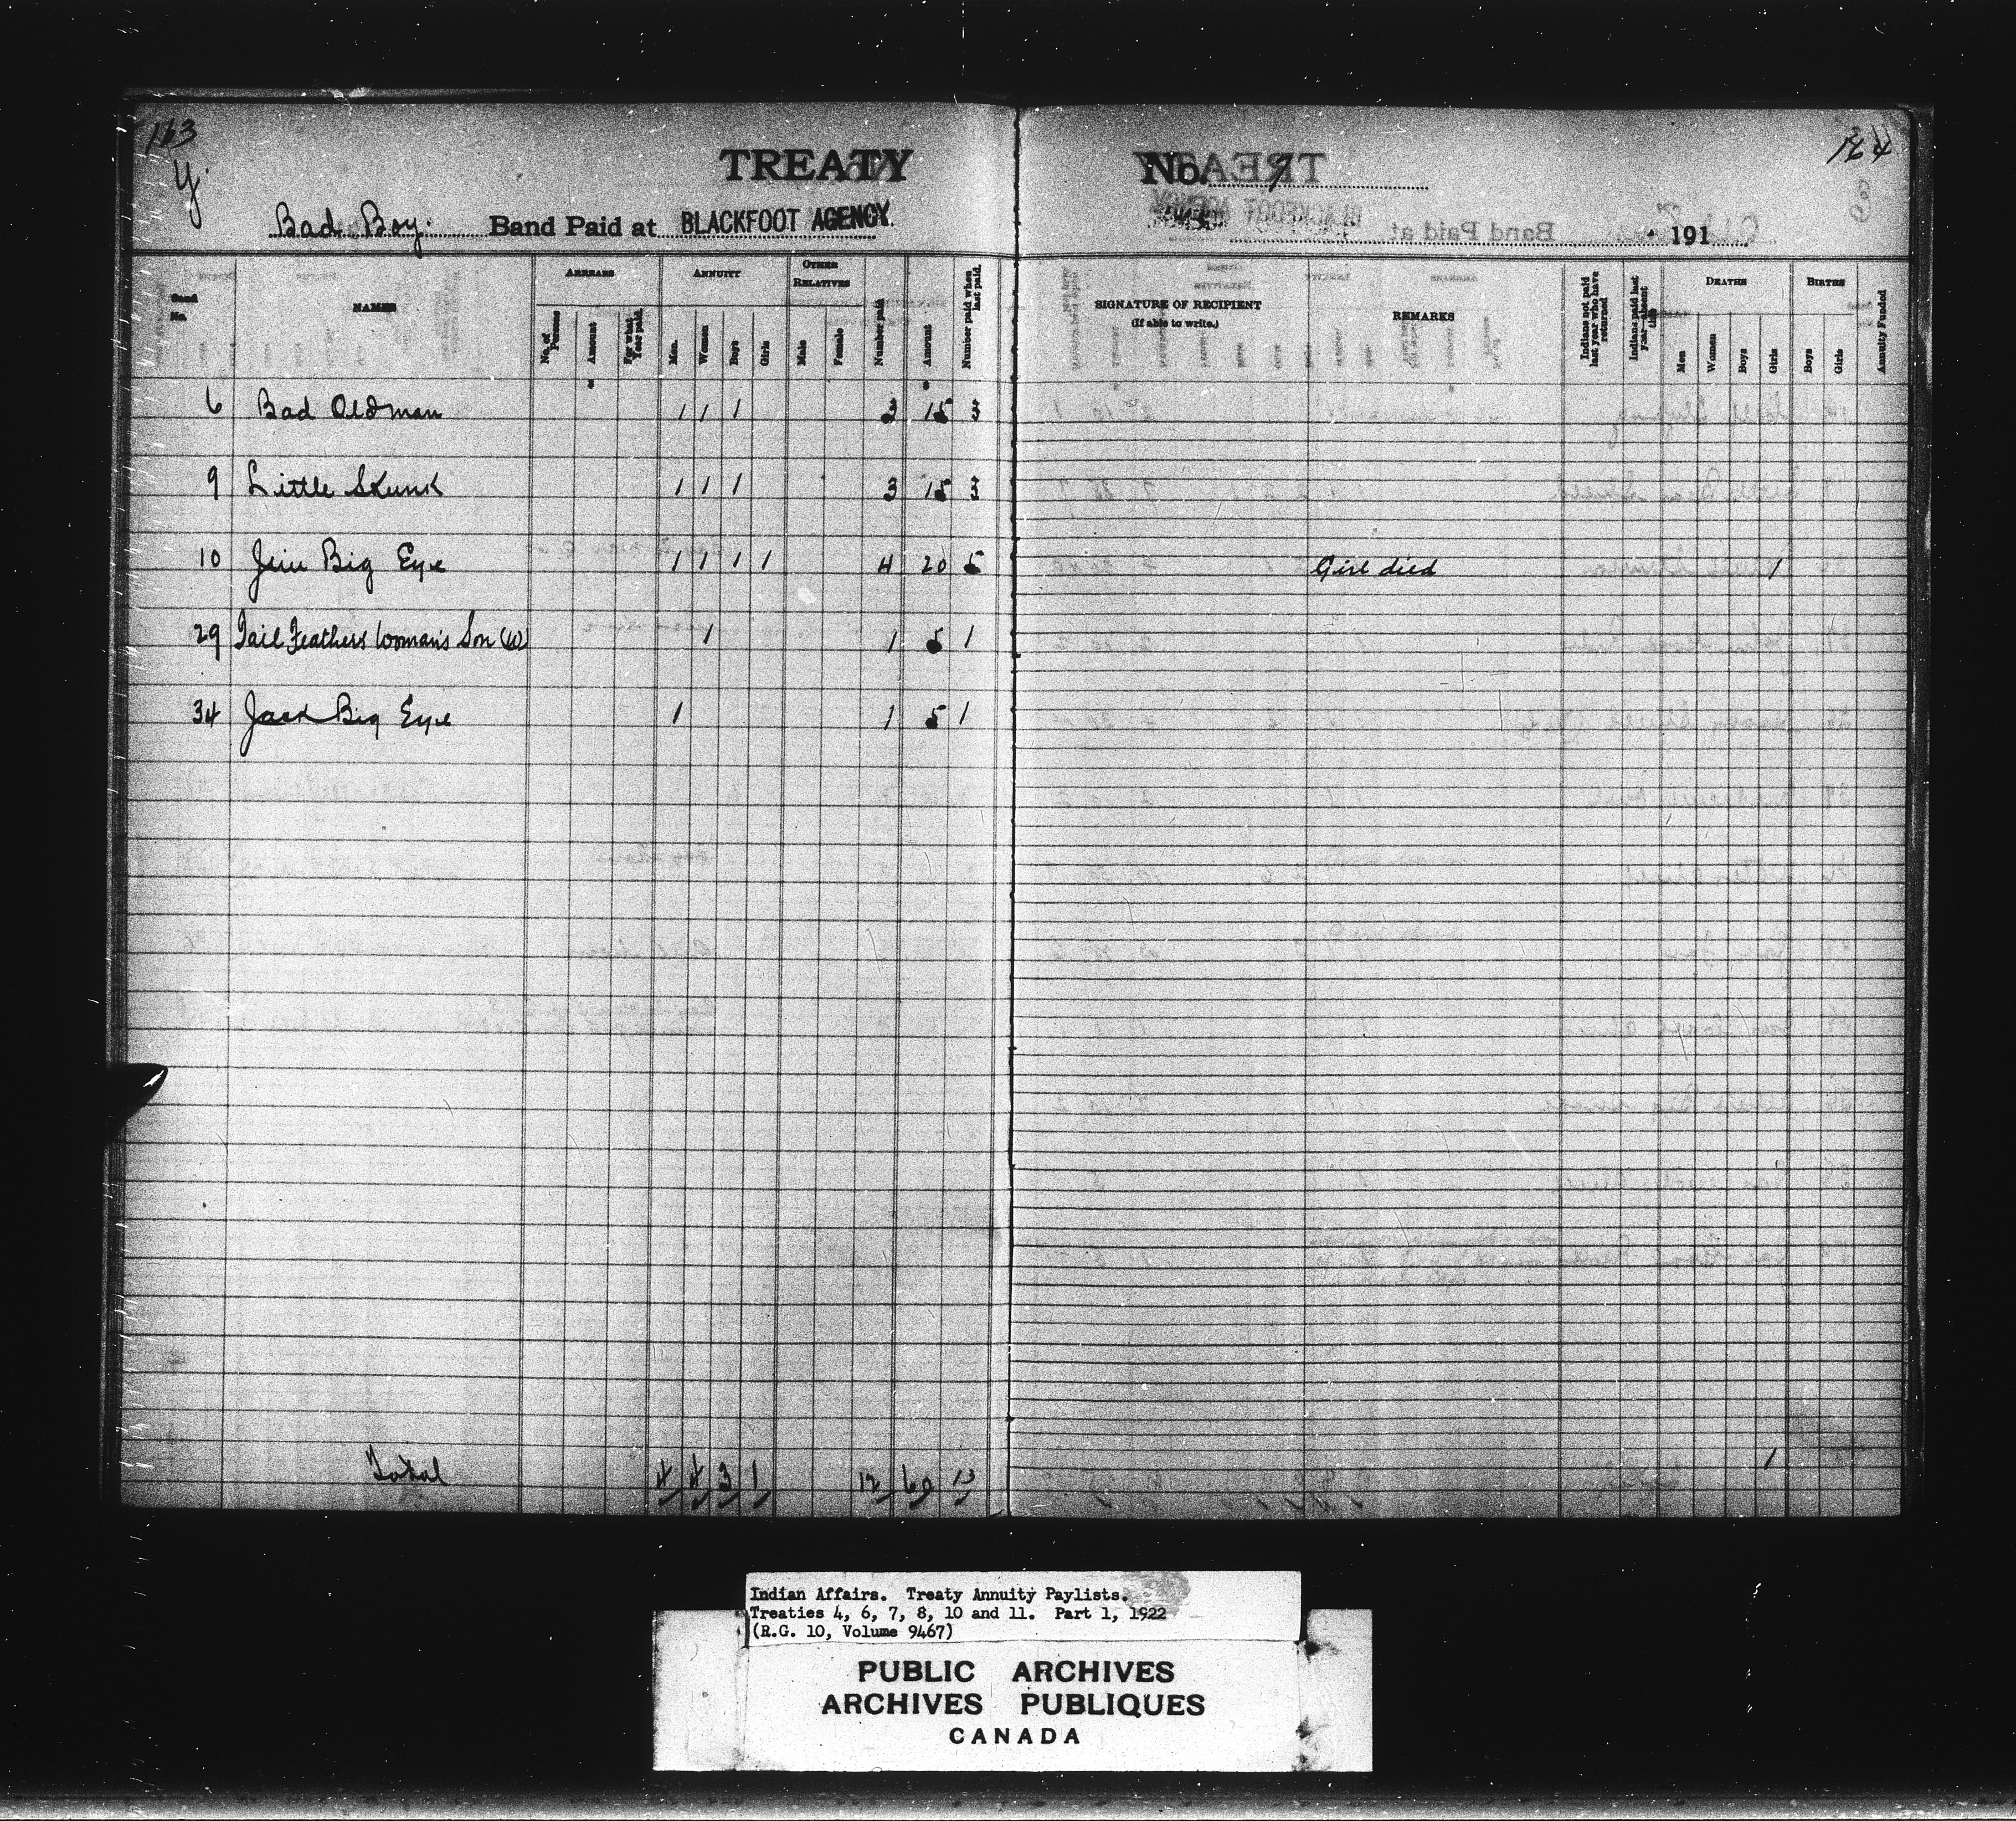 163
164
Y.
TREATY No. 7
Bad Boy. Band Paid at BLACKFOOT AGENCY 191
Band No.
NAMES
ARREARS
No. of Persons
Amount
For what Year paid.
ANNUITY
Men.
Women
Boys
Girls
OTHER RELATIVES
Male
Female
Number paid
Amount
Number paid when last paid.
SIGNATURE OF RECIPIENT
(If able to write.)
REMARKS
Indians not paid last year who have returned
Indians paid last year—absent this
DEATHS
Men
Women
Boys
Girls
BIRTHS
Boys
Girls
Annuity Funded
6 Bad Oldman 1 1 1 3 15 3
9 Little Skunk 1 1 1 3 15 3
10 Jim Big Eye 1 1 1 1 4 20 5 Girl died 1
29 Tail Feathers Woman's Son (W) 1 1 5 1
34 Jack Big Eye 1 1 5 1
Total 4 4 3 1 12 60 13 1
Indian Affairs. Treaty Annuity Paylists.
Treaties 4, 6, 7, 8, 10 and 11. Part 1, 1922
(R.G. 10, Volume 9467)
PUBLIC ARCHIVES
ARCHIVES PUBLIQUES
CANADA